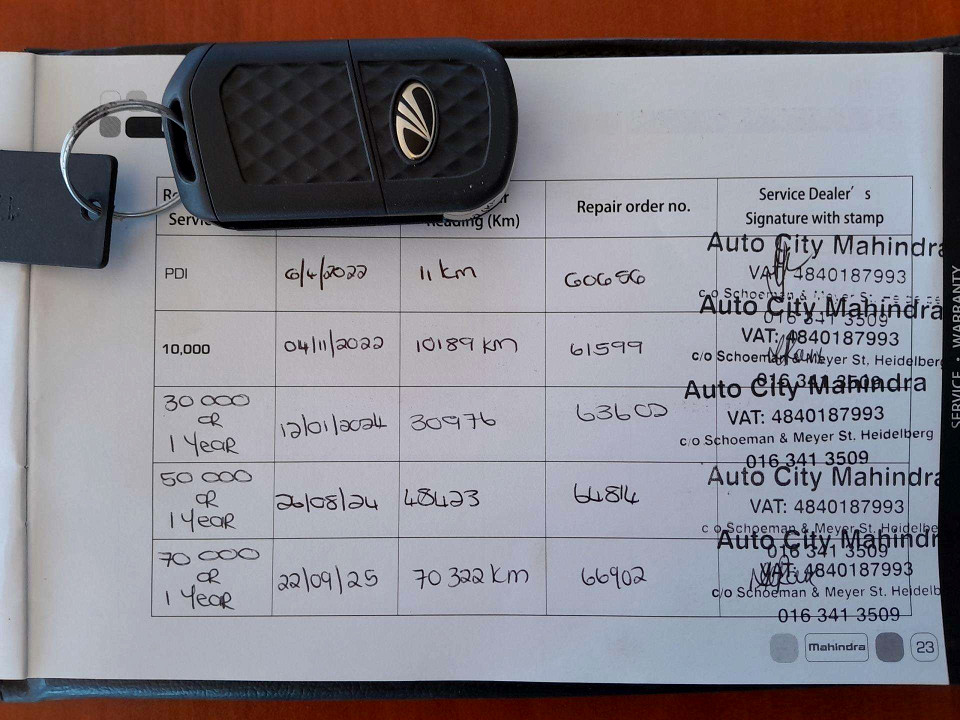 Service Dealer's
Repair order no.
Signature with stamp
Reading (Km)
PDI
6/4/2022
11 km
60656
Auto City Mahindra
VAT: 4840187993
c/o Schoeman &
016 341 3509
10,000
04/11/2022
10189 KM
61599
Auto City Mahindra
VAT: 4840187993
c/o Schoeman & Meyer St. Heidelberg
016 341 3509
30 000
OR
1 Year
12/01/2024
30976
63602
Auto City Mahindra
VAT: 4840187993
c/o Schoeman & Meyer St. Heidelberg
016 341 3509
50 000
OR
1 Year
26/08/24
48423
64814
Auto City Mahindra
VAT: 4840187993
c o Schoeman & Meyer St. Heidelbe
016 341 3509
70 000
OR
1 Year
22/09/25
70 322 KM
66902
Auto City Mahindr
VAT: 4840187993
c/o Schoeman & Meyer St. Heidelb
016 341 3509
Mahindra
23
SERVICE · WARRANTY